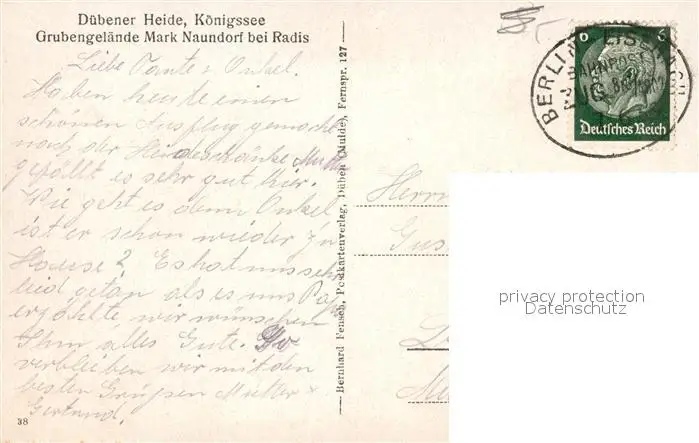 Dübener Heide, Königssee
Grubengelände Mark Naundorf bei Radis
Liebe Tante u Onkel.
Haben heute einen
schönen Ausflug gemacht
nach der Heideschänke Mutti
gefällt es sehr gut hier.
Wie geht es denn Onkel
ist er schon wieder zu
Hause? Es hat uns sehr
leid getan als es uns Papa
erzählte wir wünschen
Ihm alles Gute. So
verbleiben wir mit den
besten Grüßen Mutter
Gertraud.
38
Bernhard Fensch, Postkartenverlag, Düben (Mulde), Fernspr. 127
6 6
Deutsches Reich
BERLIN EISENACH
BAHNPOST
ZUG
Herrn
Gus
privacy protection
Datenschutz